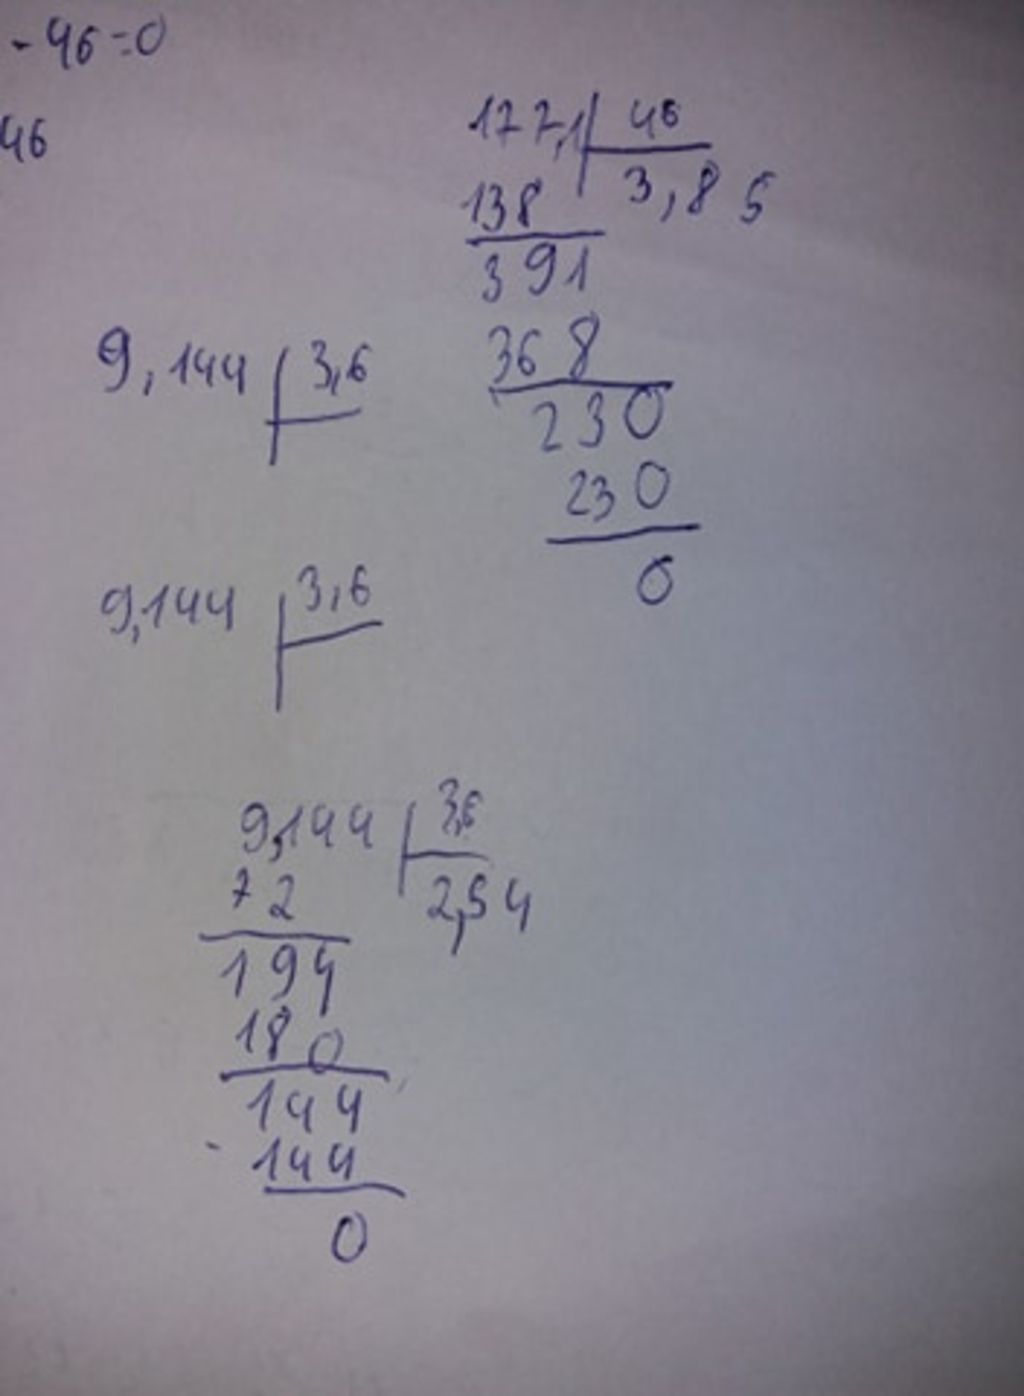 - 46 = 0
46
177,1 46
138 3,85
391
368
230
230
0
9,144 3,6
9,144 3,6
9,144 3,6
72 2,54
194
180
144
- 144
0